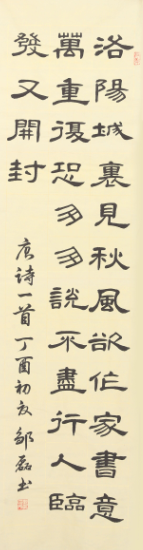 洛陽城裏見秋風欲作家書意
萬重復恐匆匆說不盡行人臨
發又開封
唐詩一首丁酉初夏邹磊书